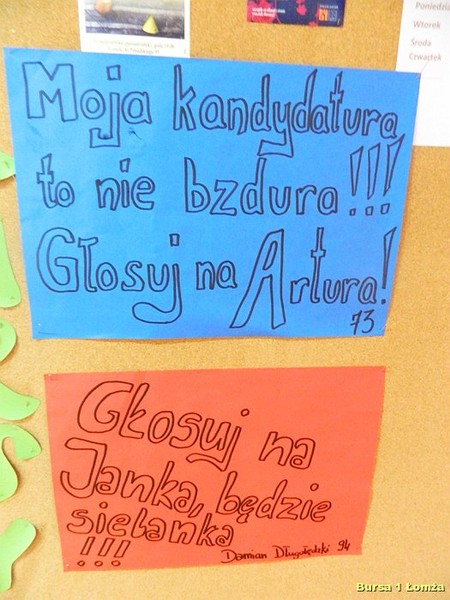 Poniedzia
Wtorek
Środa
Czwartek
Moja kandydatura
to nie bzdura!!!
Głosuj na Artura!
73
Głosuj na
Janka, będzie
sielanka
!!!
Damian 94
Bursa 1 Łomża